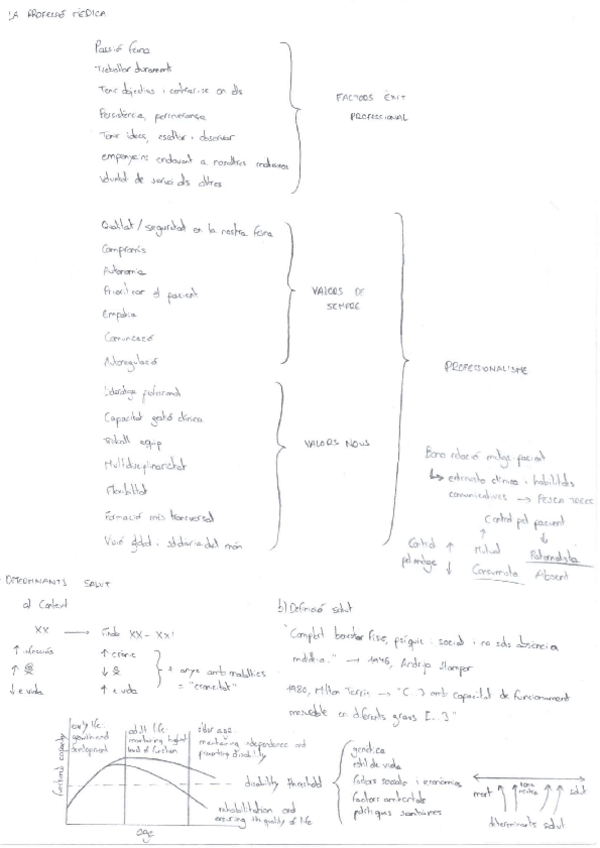 LA PROFESSIÓ MÈDICA
Passió feina
Treballar durament
Tenir objectius i centrar-se en ells
Persistència, perseverança
Tenir idees, escoltar i observar
endavant a nosaltres mateixos
Voluntat de servei als altres
FACTORS ÈXIT
PROFESSIONAL
Qualitat / seguretat en la nostra feina
Compromís
Autonomia
Prioritzar el pacient
Empatia
Comunicació
Autoregulació
VALORS DE
SEMPRE
Lideratge
Capacitat gestió clínica
Treball equip
Multidisciplinarietat
Flexibilitat
Formació més transversal
Visió global i solidària del món
VALORS NOUS
PROFESSIONALISME
Bona relació metge pacient
↳ entrevista clínica i habilitats
comunicatives →
Control pel pacient
Control
pel metge
↑ Mutual Paternalista
↓ Consumista Absent
DETERMINANTS SALUT
a) Context
XX → finals XX - XXI
↑ infeccions ↑ crònic
↓ e vida ↑ e vida
+ anys amb malalties
= "cronicitat"
b) Definició salut
"Complet benestar físic, psíquic i social i no sols absència
malaltia." → 1945, Stamper
1980, Milton Terris → "(...) amb capacitat de funcionament
mesurable en diferents graus [...]"
functional capacity
early life:
growth and
development
adult life:
maintaining highest
level of function
older age:
maintaining independence and
preventing disability
disability threshold
rehabilitation and
ensuring the quality of life
age
genètica
estil de vida
factors socials i econòmics
factors ambientals
polítiques sanitàries
mort
salut
determinants salut